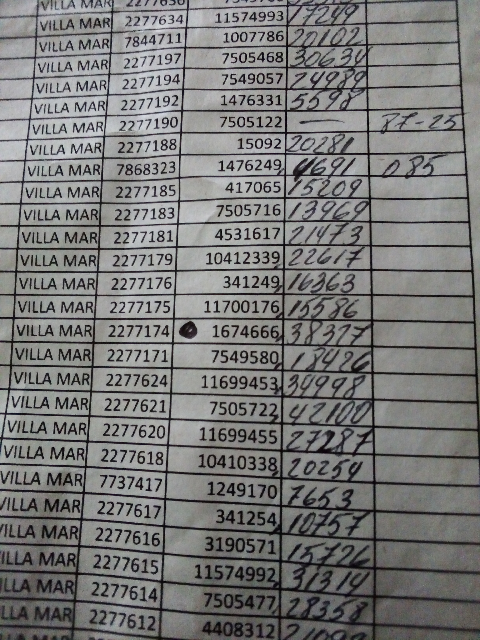 VILLA MAR 2277636
VILLA MAR 2277634 11574993 17249
VILLA MAR 7844711 1007786 20102
VILLA MAR 2277197 7505468 30634
VILLA MAR 2277194 7549057 24989
VILLA MAR 2277192 1476331 5598
VILLA MAR 2277190 7505122 — 87-25
VILLA MAR 2277188 15092 20281
VILLA MAR 7868323 1476249 4691 085
VILLA MAR 2277185 417065 15209
VILLA MAR 2277183 7505716 13969
VILLA MAR 2277181 4531617 21473
VILLA MAR 2277179 10412339 22617
VILLA MAR 2277176 341249 16363
VILLA MAR 2277175 11700176 15586
VILLA MAR 2277174 1674666 38327
VILLA MAR 2277171 7549580 18426
VILLA MAR 2277624 11699453 39998
VILLA MAR 2277621 7505722 42100
VILLA MAR 2277620 11699455 27287
VILLA MAR 2277618 10410338 20254
VILLA MAR 7737417 1249170 7653
VILLA MAR 2277617 341254 10757
VILLA MAR 2277616 3190571 15726
ILLA MAR 2277615 11574992 31314
ILLA MAR 2277614 7505477 28358
LLA MAR 2277612 4408312